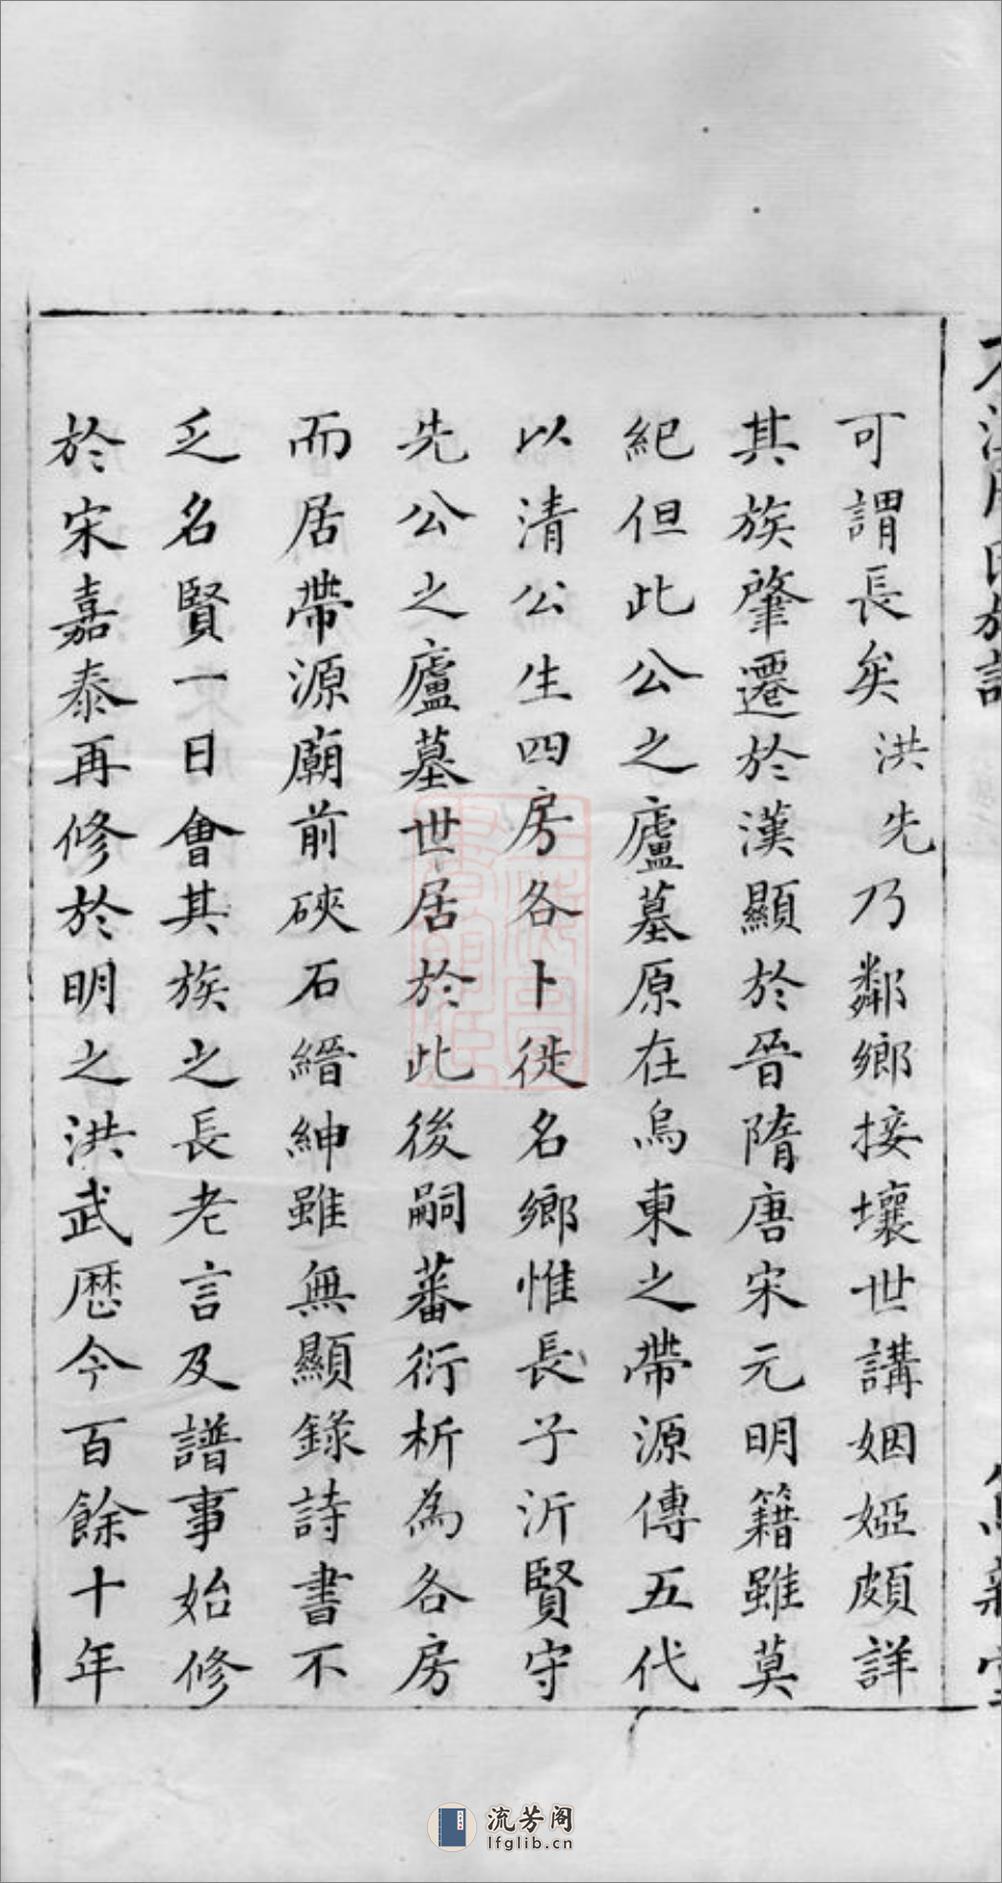 可謂長矣洪先乃鄰鄉接壤世講姻婭頗詳
其族肇遷於漢顯於晉隋唐宋元明籍雖莫
紀但此公之廬墓原在烏東之帶源傳五代
以清公生四房各卜徙名鄉惟長子沂賢守
先公之廬墓世居於此後嗣蕃衍析為各房
而居帶源廟前硤石縉紳雖無顯錄詩書不
乏名賢一日會其族之長老言及譜事始修
於宋嘉泰再修於明之洪武歷今百餘十年
流芳阁
lfglib.cn